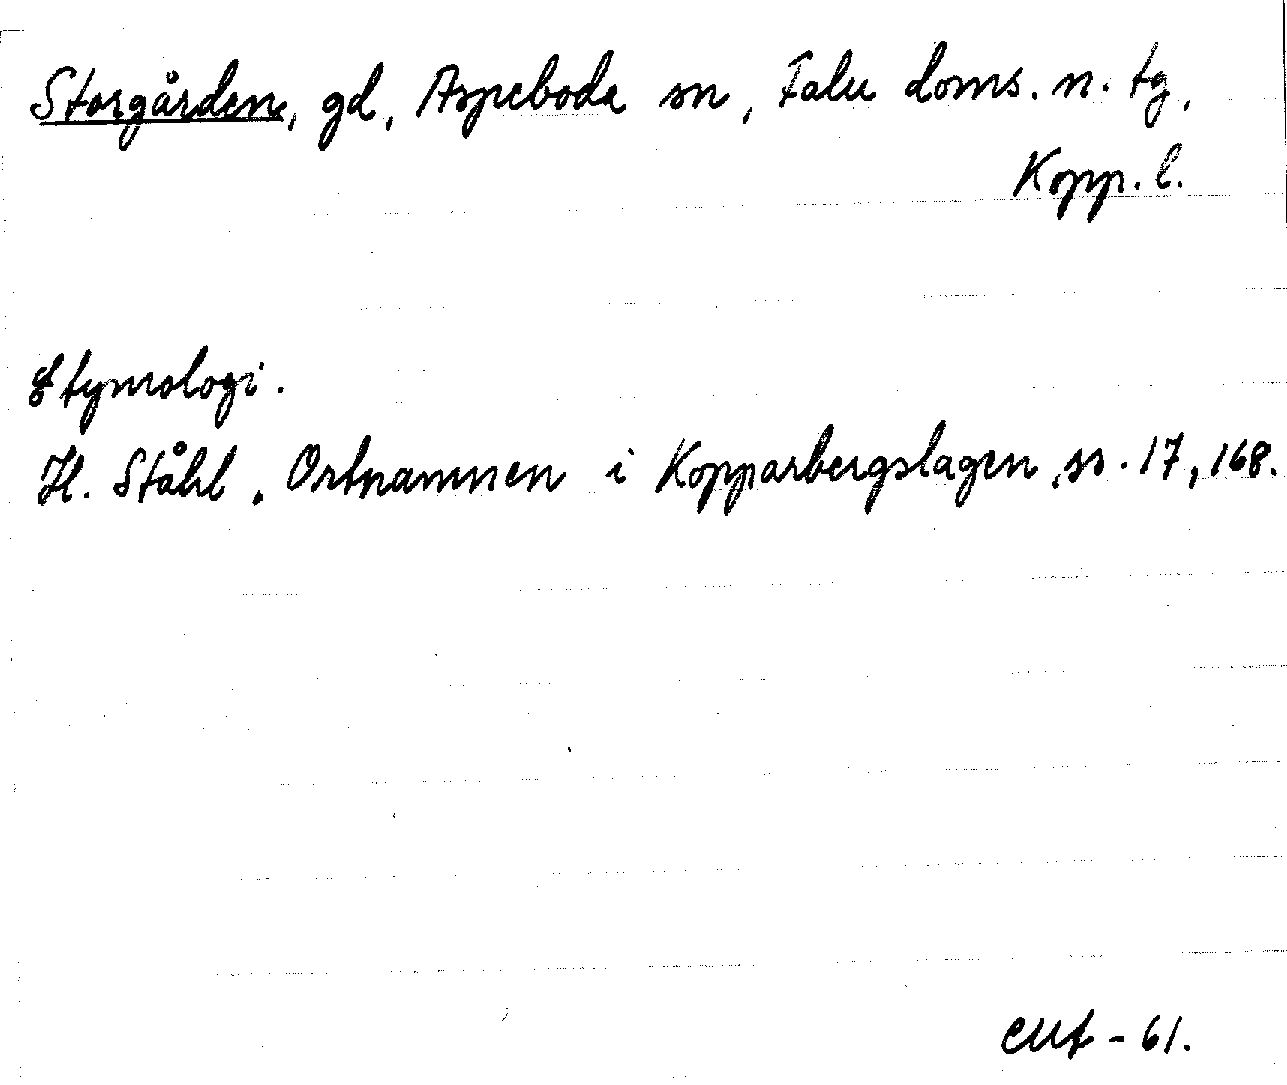 Storgården, gd, Aspeboda sn, Falu doms. n. tg,
Kopp. l.
Etymologi.
H. Ståhl, Ortnamnen i Kopparbergslagen, ss. 17, 168.
-61.